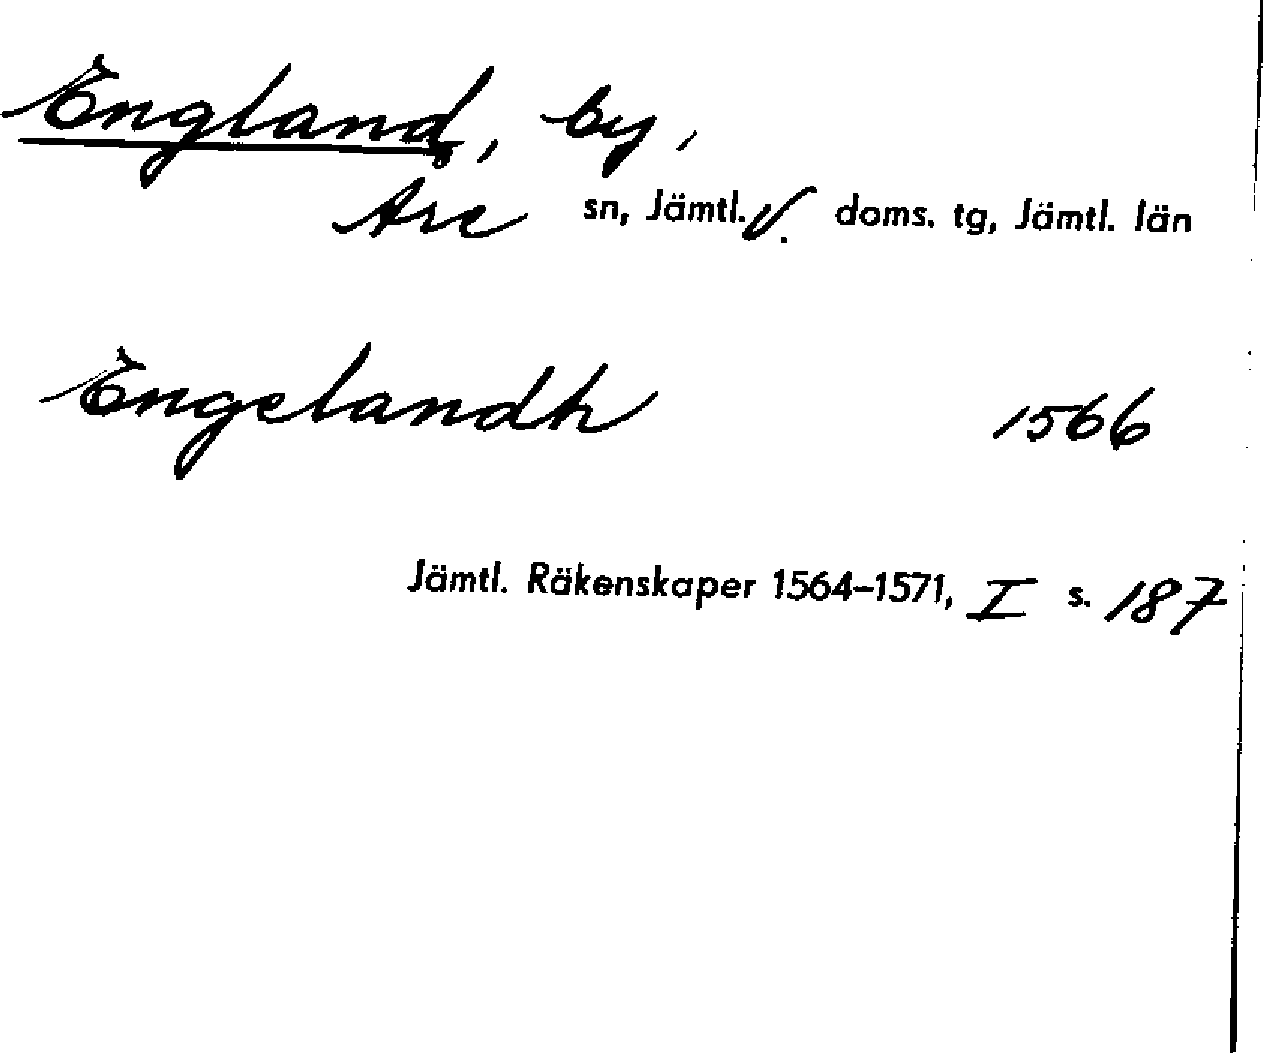 England, by,
Åre sn, Jämtl. V. doms. tg, Jämtl. län
Engelandh 1566
Jämtl. Räkenskaper 1564–1571, I s. 187